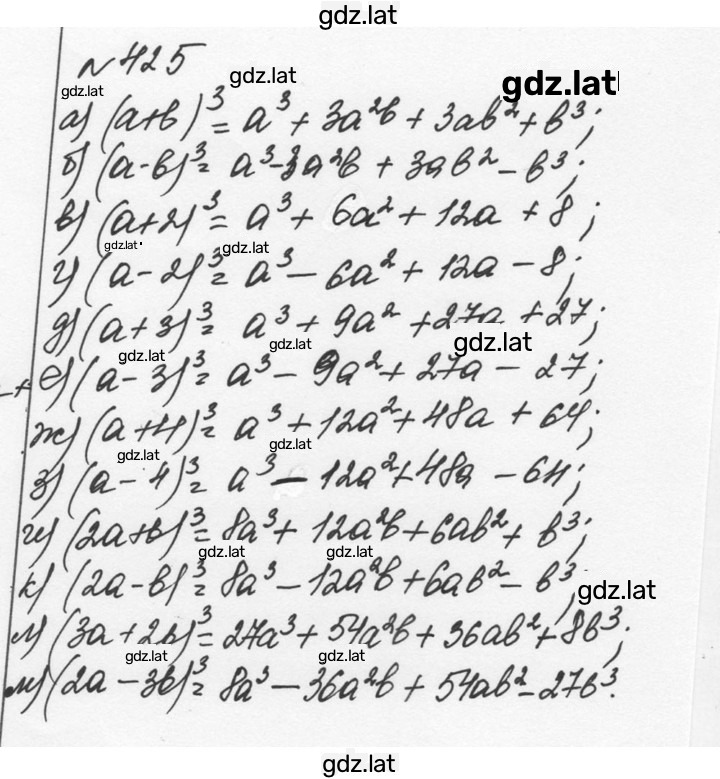 gdz.lat
№425
gdz.lat
gdz.lat
gdz.lat
а) (a+b)³ = a³ + 3a²b + 3ab² + b³;
б) (a-b)³ = a³-3a²b + 3ab² - b³;
в) (a+2)³ = a³ + 6a² + 12a + 8;
gdz.lat
gdz.lat
г) (a-2)³ = a³ - 6a² + 12a - 8;
д) (a+3)³ = a³ + 9a² + 27a + 27;
gdz.lat
gdz.lat
gdz.lat
е) (a-3)³ = a³ - 9a² + 27a - 27;
ж) (a+4)³ = a³ + 12a² + 48a + 64;
gdz.lat
gdz.lat
з) (a-4)³ = a³ - 12a² + 48a - 64;
и) (2a+b)³ = 8a³ + 12a²b + 6ab² + b³;
gdz.lat
gdz.lat
к) (2a-b)³ = 8a³ - 12a²b + 6ab² - b³;
gdz.lat
л) (3a+2b)³ = 27a³ + 54a²b + 36ab² + 8b³;
gdz.lat
gdz.lat
м) (2a-3b)³ = 8a³ - 36a²b + 54ab² - 27b³.
gdz.lat